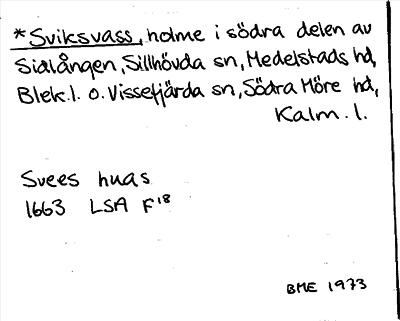 *Sviksvass, holme i södra delen av
Sidlången, Sillhövda sn, Medelstads hd,
Blek.l. o. Vissefjärda sn, Södra Möre hd,
Kalm. l.
Svees huas
1663 LSA F18
BME 1973